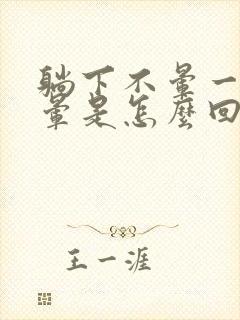 躺下不暈一
暈是怎麼回
王一涯